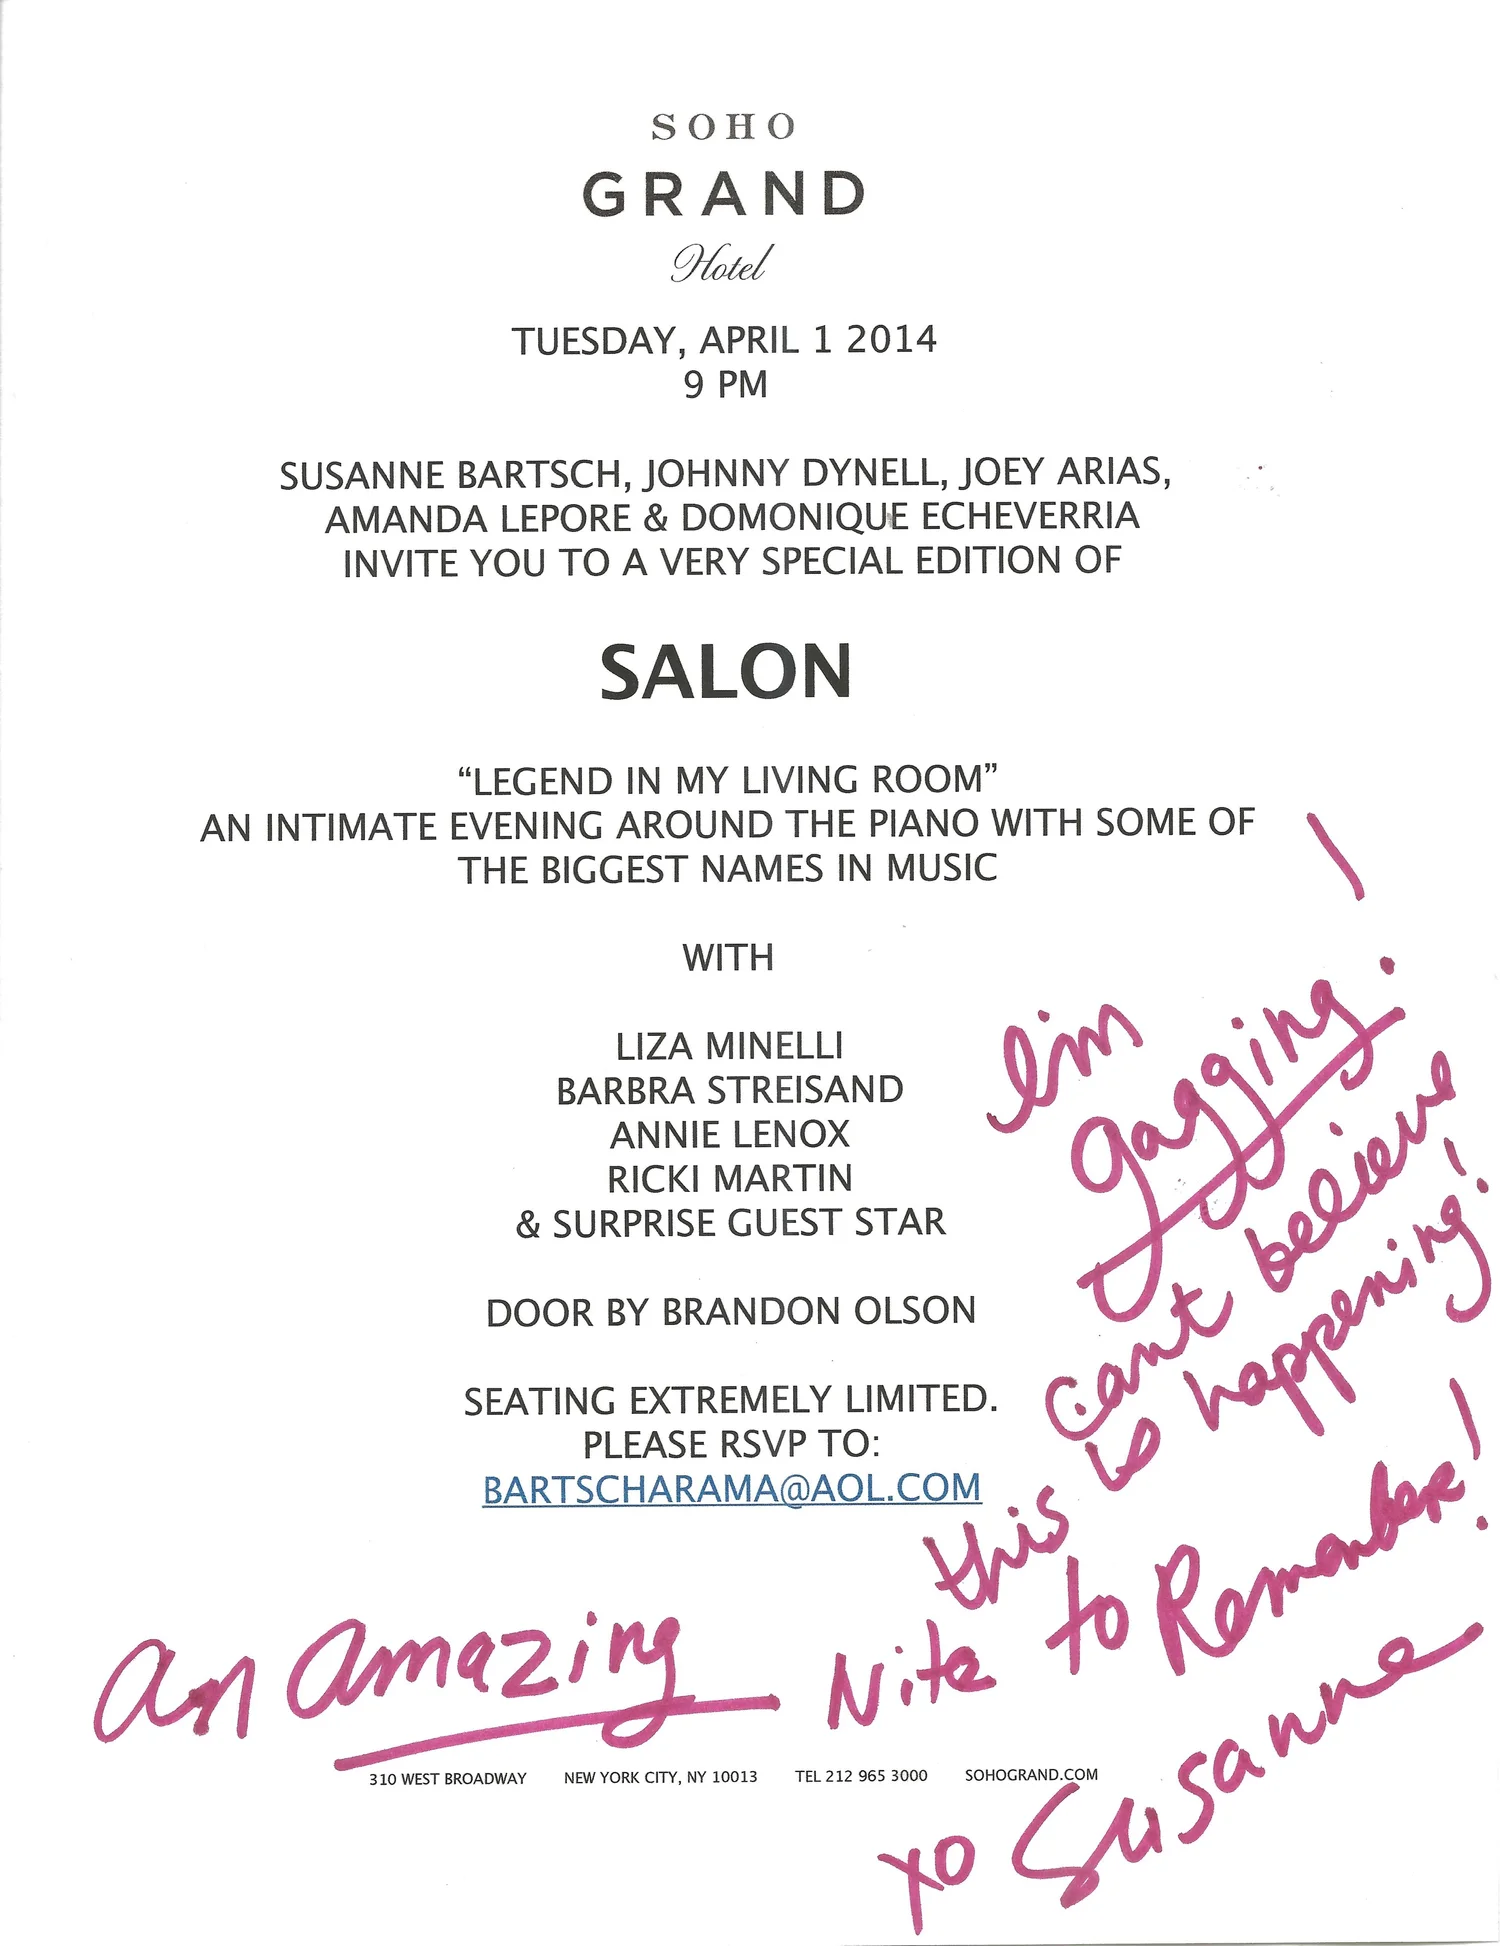 SOHO
GRAND
Hotel
TUESDAY, APRIL 1 2014
9 PM
SUSANNE BARTSCH, JOHNNY DYNELL, JOEY ARIAS,
AMANDA LEPORE & DOMONIQUE ECHEVERRIA
INVITE YOU TO A VERY SPECIAL EDITION OF
SALON
“LEGEND IN MY LIVING ROOM”
AN INTIMATE EVENING AROUND THE PIANO WITH SOME OF
THE BIGGEST NAMES IN MUSIC
WITH
LIZA MINELLI
BARBRA STREISAND
ANNIE LENOX
RICKI MARTIN
& SURPRISE GUEST STAR
DOOR BY BRANDON OLSON
SEATING EXTREMELY LIMITED.
PLEASE RSVP TO:
BARTSCHARAMA@AOL.COM
I'm
gagging!
cant believe
this is happening!
an amazing
Nite to Remember!
xo Susanne
310 WEST BROADWAY NEW YORK CITY, NY 10013 TEL 212 965 3000 SOHOGRAND.COM